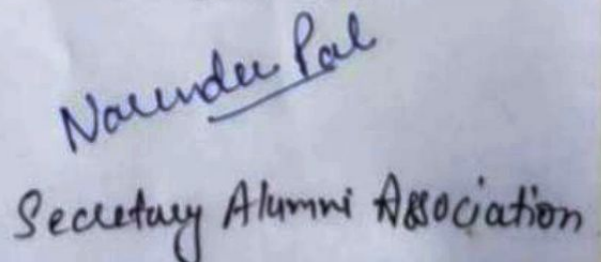 Narender Pal
Secretary Alumni Association